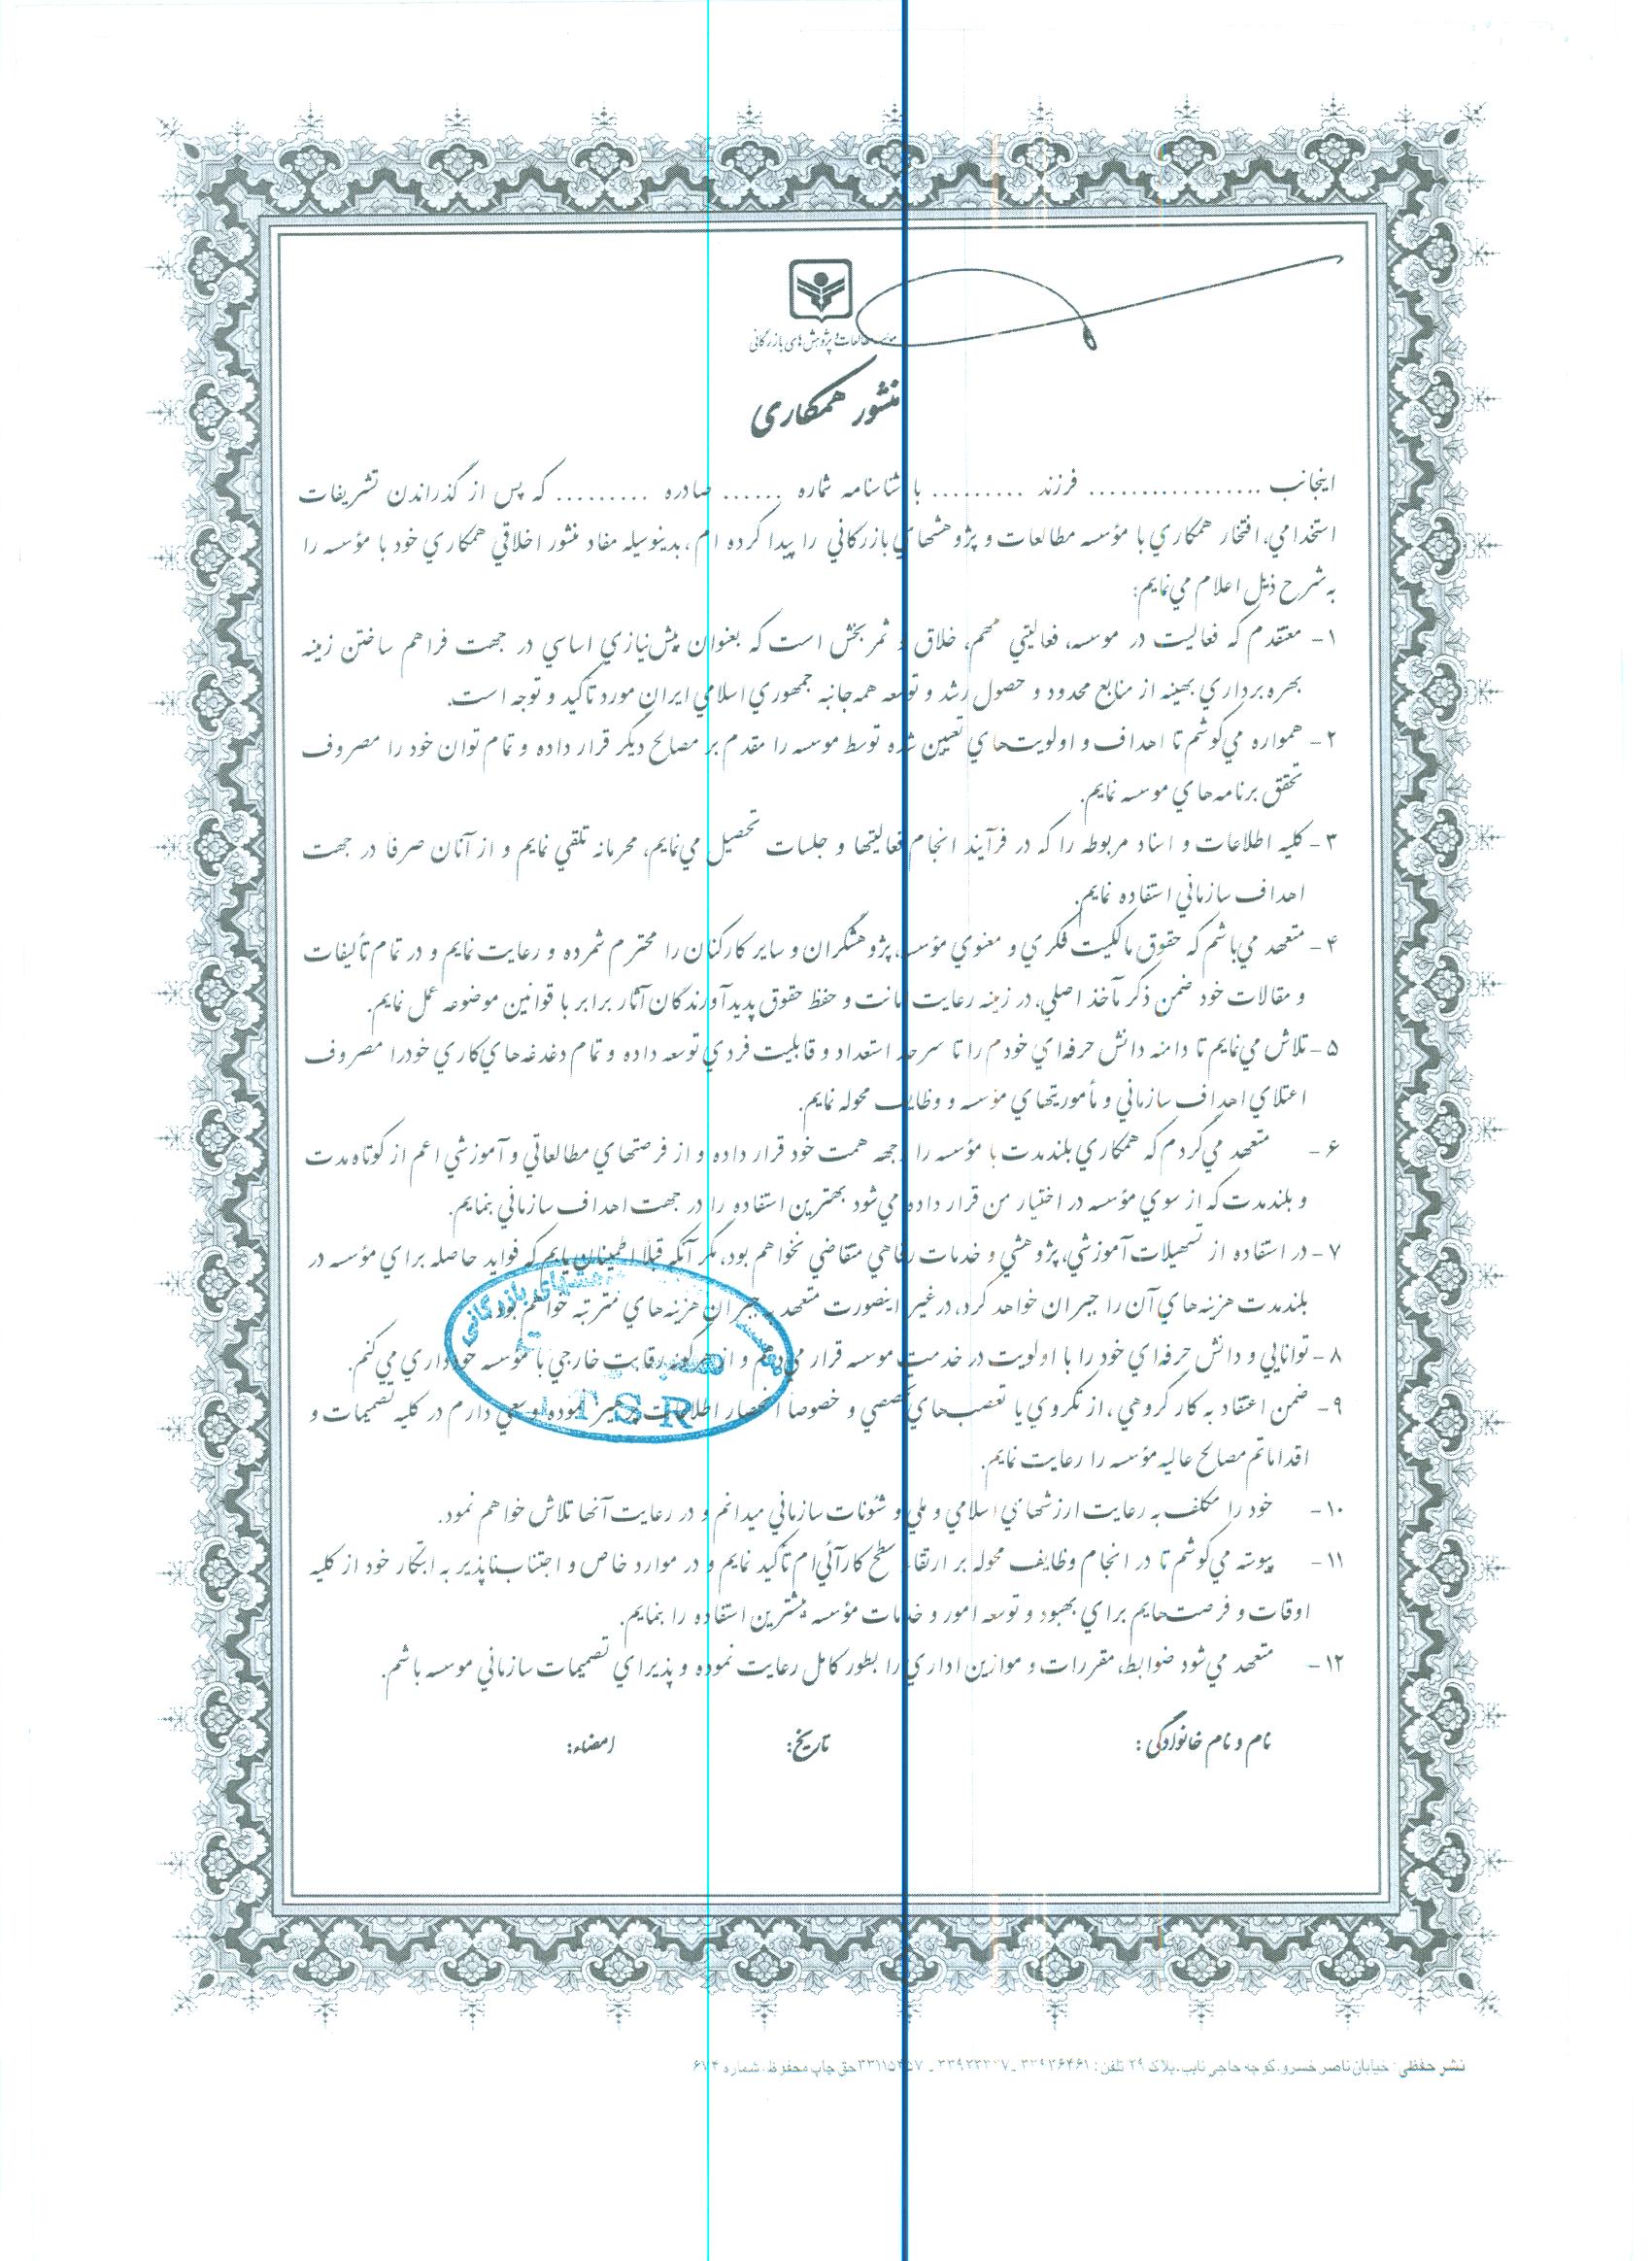 موسسه مطالعات و پژوهش های بازرگانی
منشور همکاری
اینجانب ................. فرزند ......... با شناسنامه شماره ...... صادره ......... که پس از گذراندن تشریفات
استخدامي، افتخار همکاري با مؤسسه مطالعات و پژوهشهاي بازرگاني را پیدا کرده ام، بدینوسیله مفاد منشور اخلاقي همکاري خود با مؤسسه را
به شرح ذیل اعلام مي‌نمایم:
۱- معتقدم که فعالیت در موسسه، فعالیتي مهم، خلاق و ثمربخش است که بعنوان پیش‌نیازي اساسي در جهت فراهم ساختن زمینه
بهره برداري بهینه از منابع محدود و حصول رشد و توسعه همه‌جانبه جمهوري اسلامي ایران مورد تاکید و توجه است.
۲- همواره مي‌کوشم تا اهداف و اولویت‌هاي تعیین شده توسط موسسه را مقدم بر مصالح دیگر قرار داده و تمام توان خود را مصروف
تحقق برنامه‌هاي موسسه نمایم.
۳- کلیه اطلاعات و اسناد مربوطه را که در فرآیند انجام فعالیتها و جلسات تحصیل مي‌نمایم، محرمانه تلقي نمایم و از آنان صرفا در جهت
اهداف سازماني استفاده نمایم.
۴- متعهد مي‌باشم که حقوق مالکیت فکري و معنوي مؤسسه، پژوهشگران و سایر کارکنان را محترم شمرده و رعایت نمایم و در تمام تألیفات
و مقالات خود ضمن ذکر مآخذ اصلي، در زمینه رعایت امانت و حفظ حقوق پدیدآورندگان آثار برابر با قوانین موضوعه عمل نمایم.
۵- تلاش مي‌نمایم تا دامنه دانش حرفه‌اي خودم را تا سرحد استعداد و قابلیت فردي توسعه داده و تمام دغدغه‌هاي کاري خودرا مصروف
اعتلاي اهداف سازماني و مأموریتهاي مؤسسه و وظایف محوله نمایم.
۶- متعهد مي‌گردم که همکاري بلندمدت با مؤسسه را وجهه همت خود قرار داده و از فرصتهاي مطالعاتي و آموزشي اعم از کوتاه‌مدت
و بلندمدت که از سوي مؤسسه در اختیار من قرار داده مي‌شود بهترین استفاده را در جهت اهداف سازماني بنمایم.
۷- در استفاده از تسهیلات آموزشي، پژوهشي و خدمات رفاهي متقاضي نخواهم بود، مگر آنکه قبلاً اطمینان یابم که فواید حاصله براي مؤسسه در
بلندمدت هزینه‌هاي آن را جبران خواهد کرد، درغیر اینصورت متعهد به جبران هزینه‌هاي مترتبه خواهم بود.
۸- توانایي و دانش حرفه‌اي خود را با اولویت در خدمت موسسه قرار مي‌دهم و از هرگونه رقابت خارجي با مؤسسه خودداري مي‌کنم.
۹- ضمن اعتقاد به کار گروهي، از تکروي یا تعصب‌هاي تخصصي و خصوصا انحصار اطلاعات پرهیز نموده و سعي دارم در کلیه تصمیمات و
اقداماتم مصالح عالیه مؤسسه را رعایت نمایم.
۱۰- خود را مکلف به رعایت ارزشهاي اسلامي و ملي و شئونات سازماني میدانم و در رعایت آنها تلاش خواهم نمود.
۱۱- پیوسته مي‌کوشم تا در انجام وظایف محوله بر ارتقاء سطح کارآئي‌ام تأکید نمایم و در موارد خاص و اجتناب‌ناپذیر به ابتکار خود از کلیه
اوقات و فرصت‌هایم براي بهبود و توسعه امور و خدمات مؤسسه بیشترین استفاده را بنمایم.
۱۲- متعهد مي‌شود ضوابط، مقررات و موازین اداري را بطور کامل رعایت نموده و پذیراي تصمیمات سازماني موسسه باشم.
نام و نام خانوادگی: تاریخ: امضاء:
پژوهشهای بازرگانی
ITSR
نشر حفظی: خیابان ناصر خسرو، کوچه حاجی نایب، پلاک ۲۹ تلفن: ۳۳۹۲۶۴۶۱ - - حق چاپ محفوظ، شماره ۶۷۴